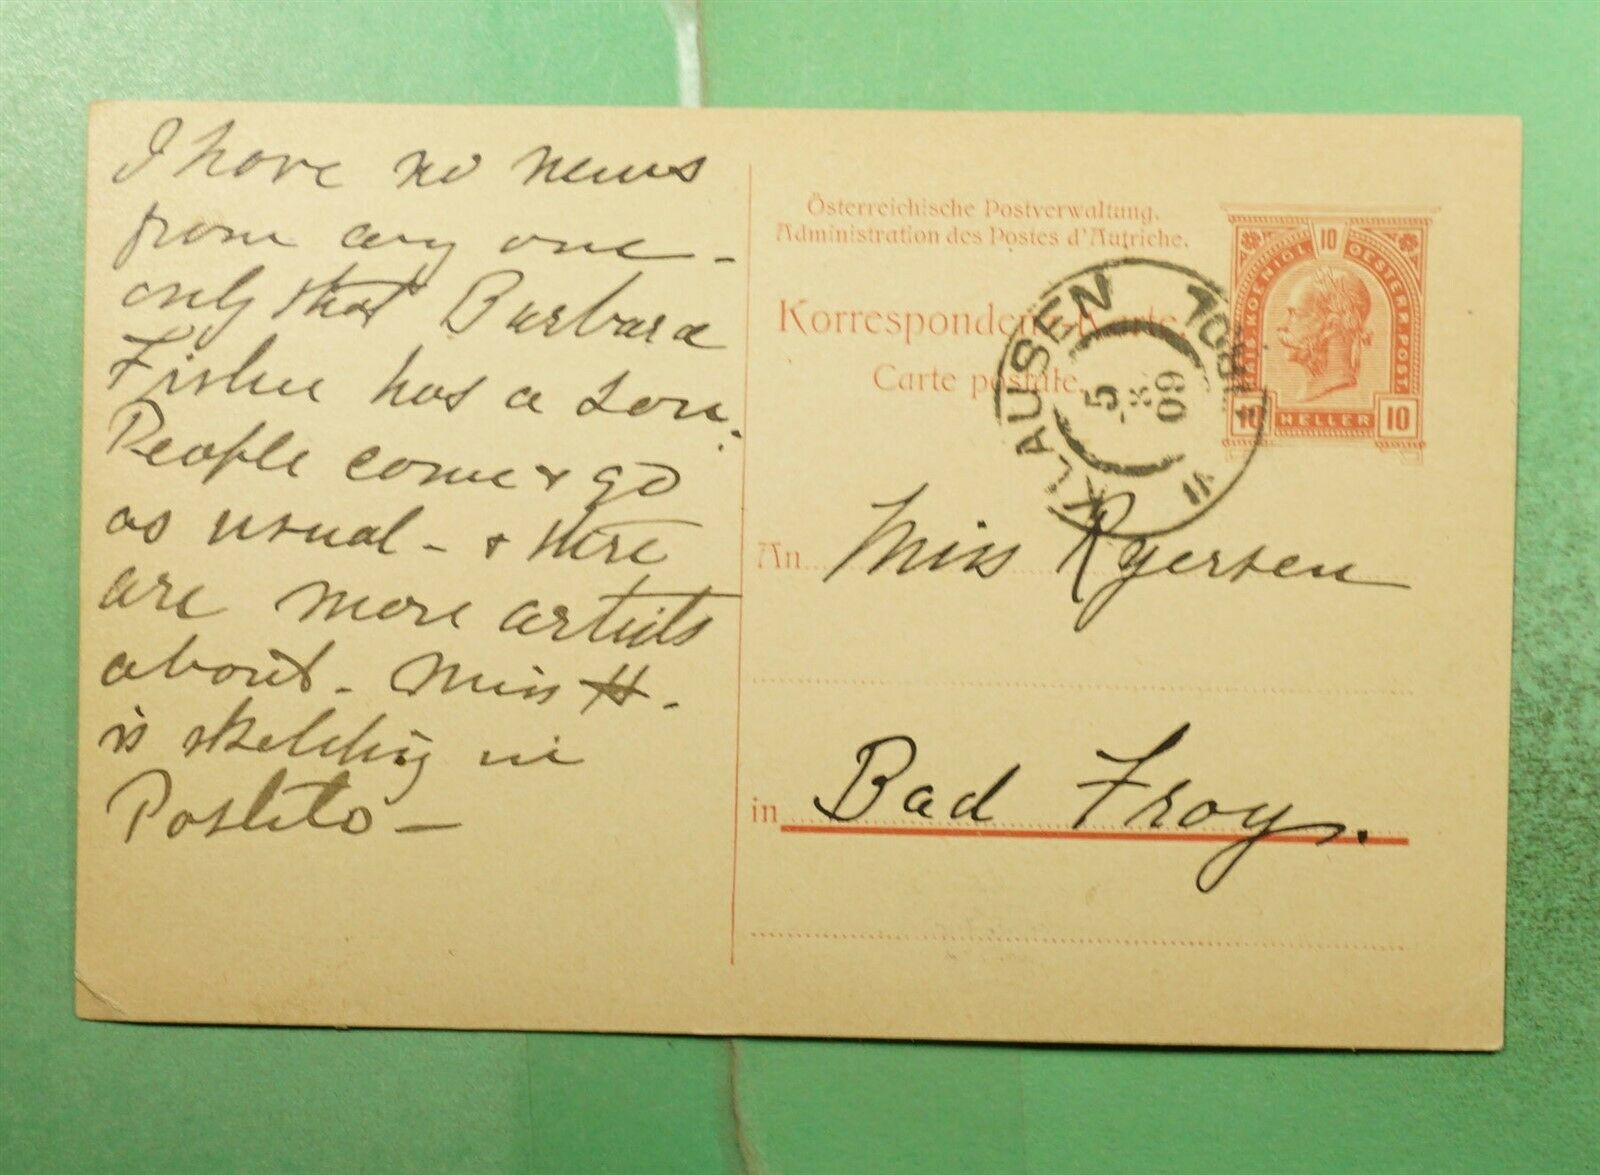 I have no news
from any one -
only that Barbara
Fisher has a son.
People come & go
as usual - & there
are more artists
about - Miss H.
is sketching in
Österreichische Postverwaltung.
Administration des Postes d'Autriche.
Korrespondenz-Karte
Carte postale.
KAIS. KOENIGL. 10 OESTERR. POST.
10 HELLER 10
KLAUSEN TIROL
5 8 09
An Miss Ryersen
in Bad Froy.